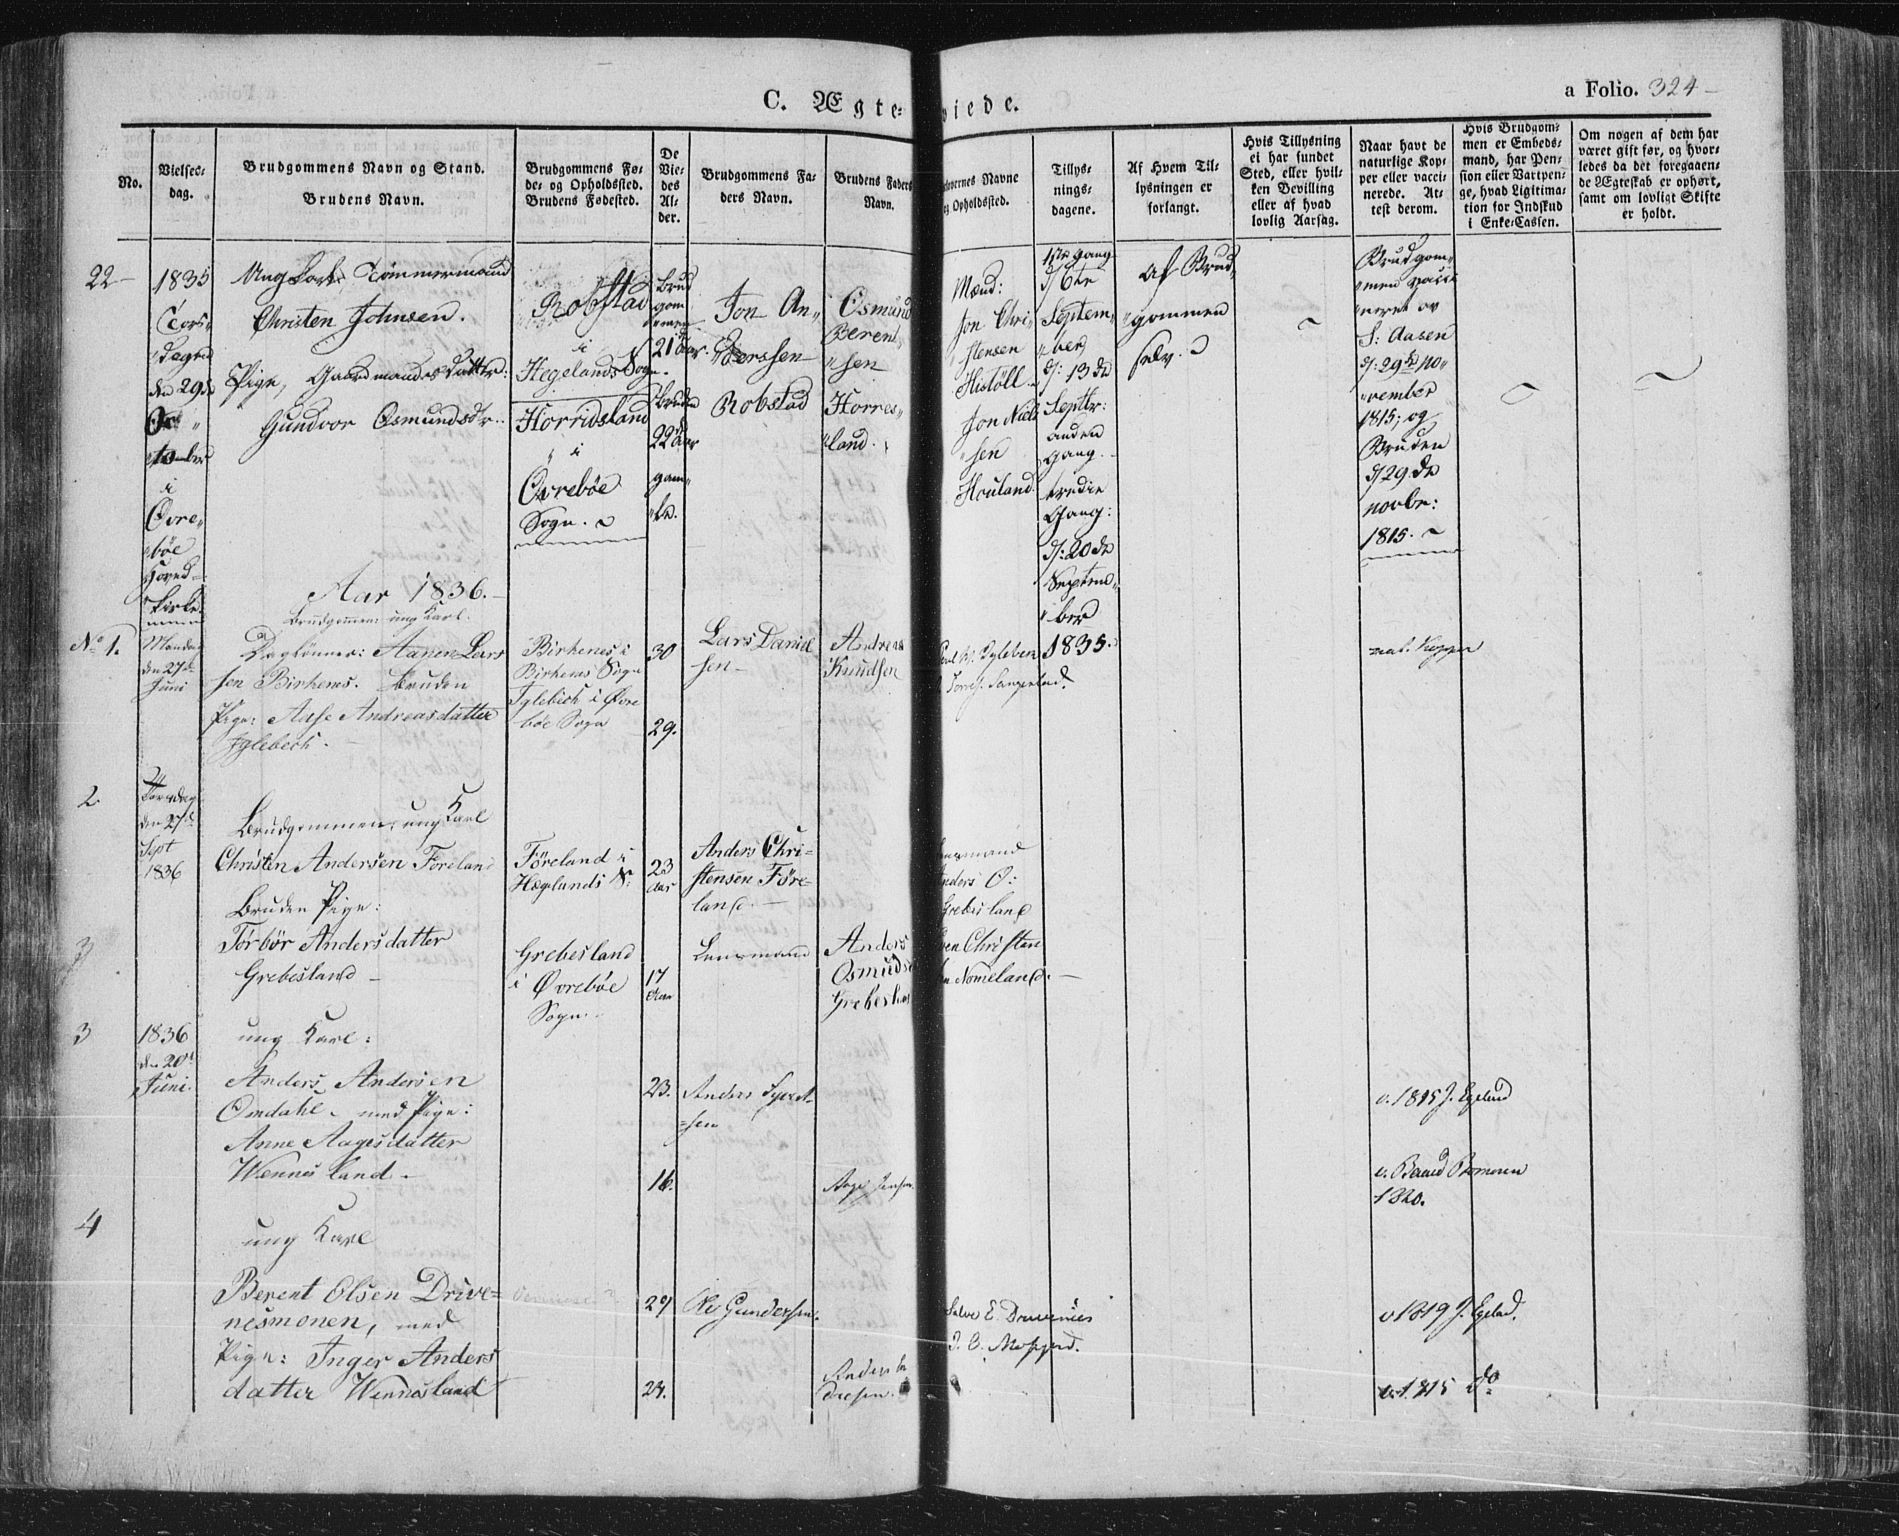 C. Ægteviede.
a Folio. 324
No.
Vielses-
dag.
Brudgommens Navn og Stand.
Brudens Navn.
Brudgommens Fø-
de- og Opholdssted.
Brudens Fødested.
De
Vie-
des
Al-
der.
Brudgommens Fa-
ders Navn.
Brudens Faders
Navn.
lovernes Navne
og Opholdssted.
Tillys-
nings-
dagene.
Af Hvem Til-
lysningen er
forlangt.
Hvis Tillysning
ei har fundet
Sted, eller hvil-
ken Bevilling
eller af hvad
lovlig Aarsag.
Naar havt de
naturlige Kop-
per eller vacci-
nerede. At-
test derom.
Hvis Brudgom-
men er Embeds-
mand, har Pen-
sion eller Vartpen-
ge, hvad Ligitima-
tion for Indskud
i Enke-Cassen.
Om nogen af dem har
været gift før, og hvor-
ledes da det foregaaen-
de Ægteskab er ophørt,
samt om lovligt Skifte
er holdt.
22
1835
Tors-
dagen
den 29de
Oc
tober
i
Øvre-
bøe
Hoved-
kirke
Ung Karl Tömmermand
Christen Johnsen.
Pige, Gaardmandsdatter:
Gundvor Osmundsdr.
Robstad
i
Hegelands Sogn.
Horridsland
i
Øvrebøe
Sogn.
Brud
gom
men
21 Aar.
Bruden
22 Aar
gam-
le.
Jon An-
derssen
Robstad
Osmund
Berent-
sen
Horres-
land.
Mænd:
Jon Chri-
stensen
Histöll
Jon Niel
sen
Houland.
1ste gang
d/ 6te
Septem-
ber,
d/: 13de
Septbr:
anden
Gang.
tredie
Gang:
d/: 20de
Septem-
ber
1835.
Af Brud-
gommen
selv.
Brudgom-
men vacci
neret av
S: Aasen
d/: 29de No-
vember
1815; og
Bruden
d/ 29de
novbr:
1815.
Aar 1836.
No 1.
Mandag
den 27de
Juni
Brudgommen: ung Karl.
Daglönner: Aanen Lars
sen Birkenes. Bruden
Pige: Aase Andreasdatter
Iglebech.
Birkenes i
Birkenes Sogn
Iglebech i Øvre
bøe Sogn
30
29.
Lars Daniel
sen
Andreas
Knudsen
nat. Kopper
2
Torsdag
den 27de
Sept
1836
Brudgommen, ung Karl
Christen Andersen Föreland
Bruden Pige:
Torbör Andersdatter
Grebesland
Föreland i
Hæglands S:
Grebesland
i Øvrebøe
Sogn.
23
Aar
17
Aar
Anders Chri-
stensen Före-
land.
Lensmand
Anders
Osmunds
Grebesland
Lensmand
Anders O:
Grebesland
Christen
Nomeland.
3
3
1836
den 20de
Juni.
ung Karl:
Anders Andersen
Omdahl, med Pige:
Anne Aagesdatter
Wennesland
23.
16.
Anders Syvert-
sen
Aage Jensen.
v. 1815 J. Egeland
1820.
4
ung Karl
Berent Olsen Drive-
nesmonen, med
Pige: Inger Anders
datter Wennesland
29
24.
Ole Gundersen.
Anders
v 1819 J. Egelad.
v. 1815 do